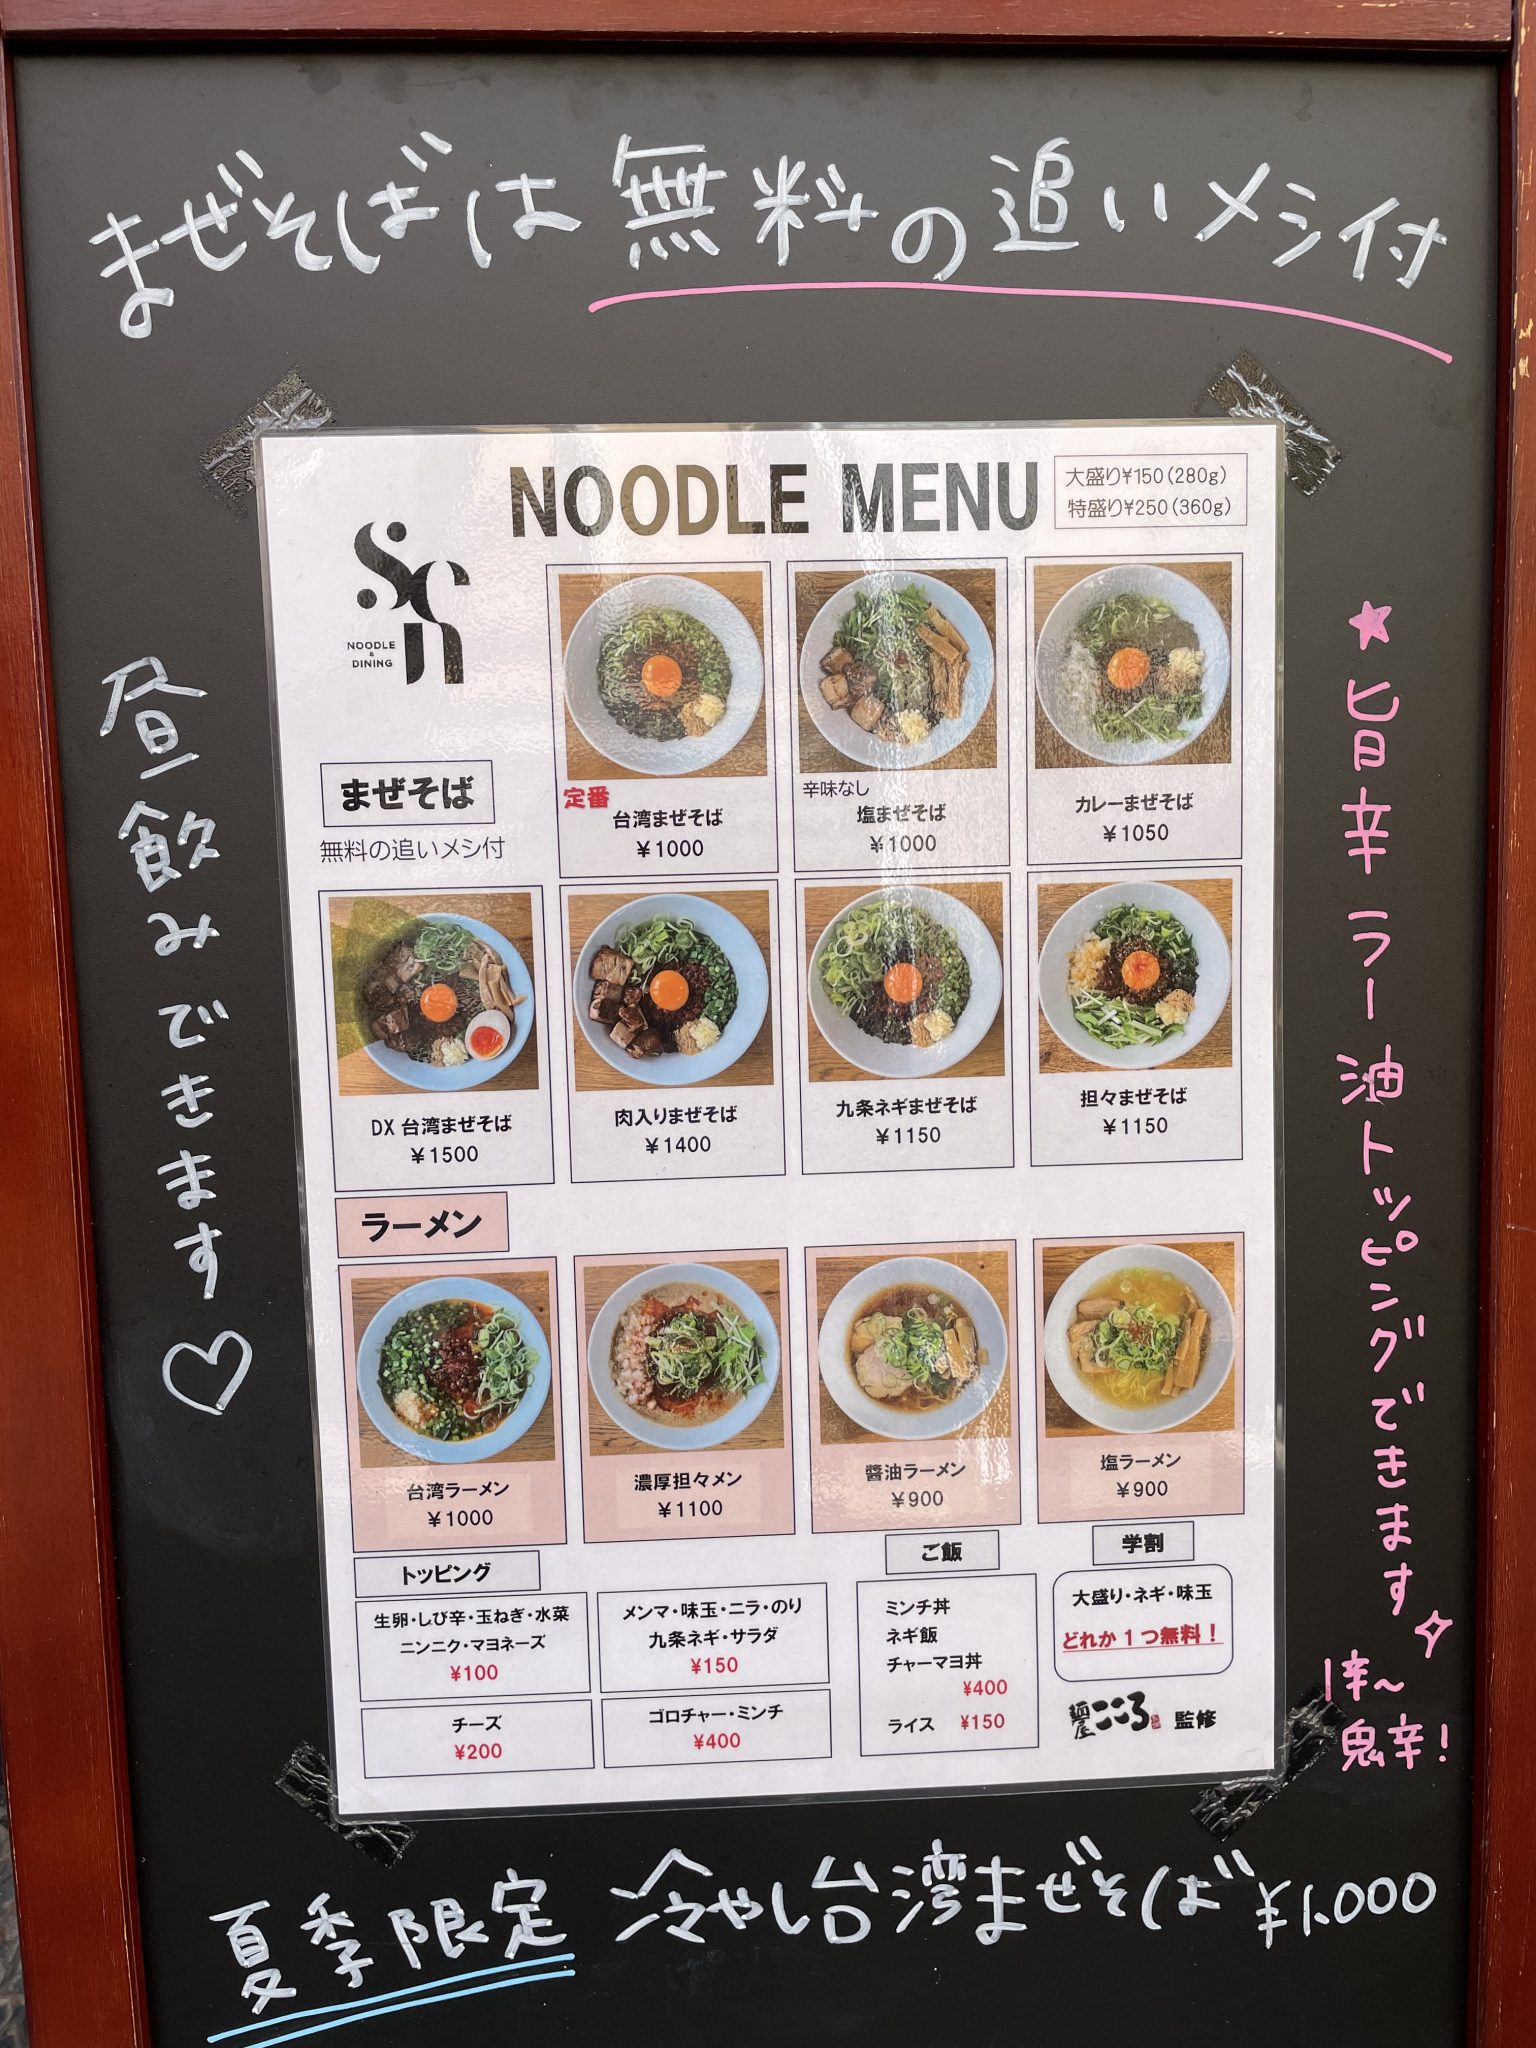 まぜそばは無料の追いメシ付
昼飲みできます♡
★旨辛ラー油トッピングできます
1辛～
鬼辛!
NOODLE MENU
大盛り¥150(280g)
特盛り¥250(360g)
NOODLE
&
DINING
まぜそば
無料の追いメシ付
定番
台湾まぜそば
¥1000
辛味なし
塩まぜそば
¥1000
カレーまぜそば
¥1050
DX 台湾まぜそば
¥1500
肉入りまぜそば
¥1400
九条ネギまぜそば
¥1150
担々まぜそば
¥1150
ラーメン
台湾ラーメン
¥1000
濃厚担々メン
¥1100
醤油ラーメン
¥900
塩ラーメン
¥900
トッピング
生卵・しび辛・玉ねぎ・水菜
ニンニク・マヨネーズ
¥100
メンマ・味玉・ニラ・のり
九条ネギ・サラダ
¥150
チーズ
¥200
ゴロチャー・ミンチ
¥400
ご飯
ミンチ丼
ネギ飯
チャーマヨ丼
¥400
ライス ¥150
学割
大盛り・ネギ・味玉
どれか1つ無料!
麺屋こころ 監修
夏季限定 冷やし台湾まぜそば ¥1,000